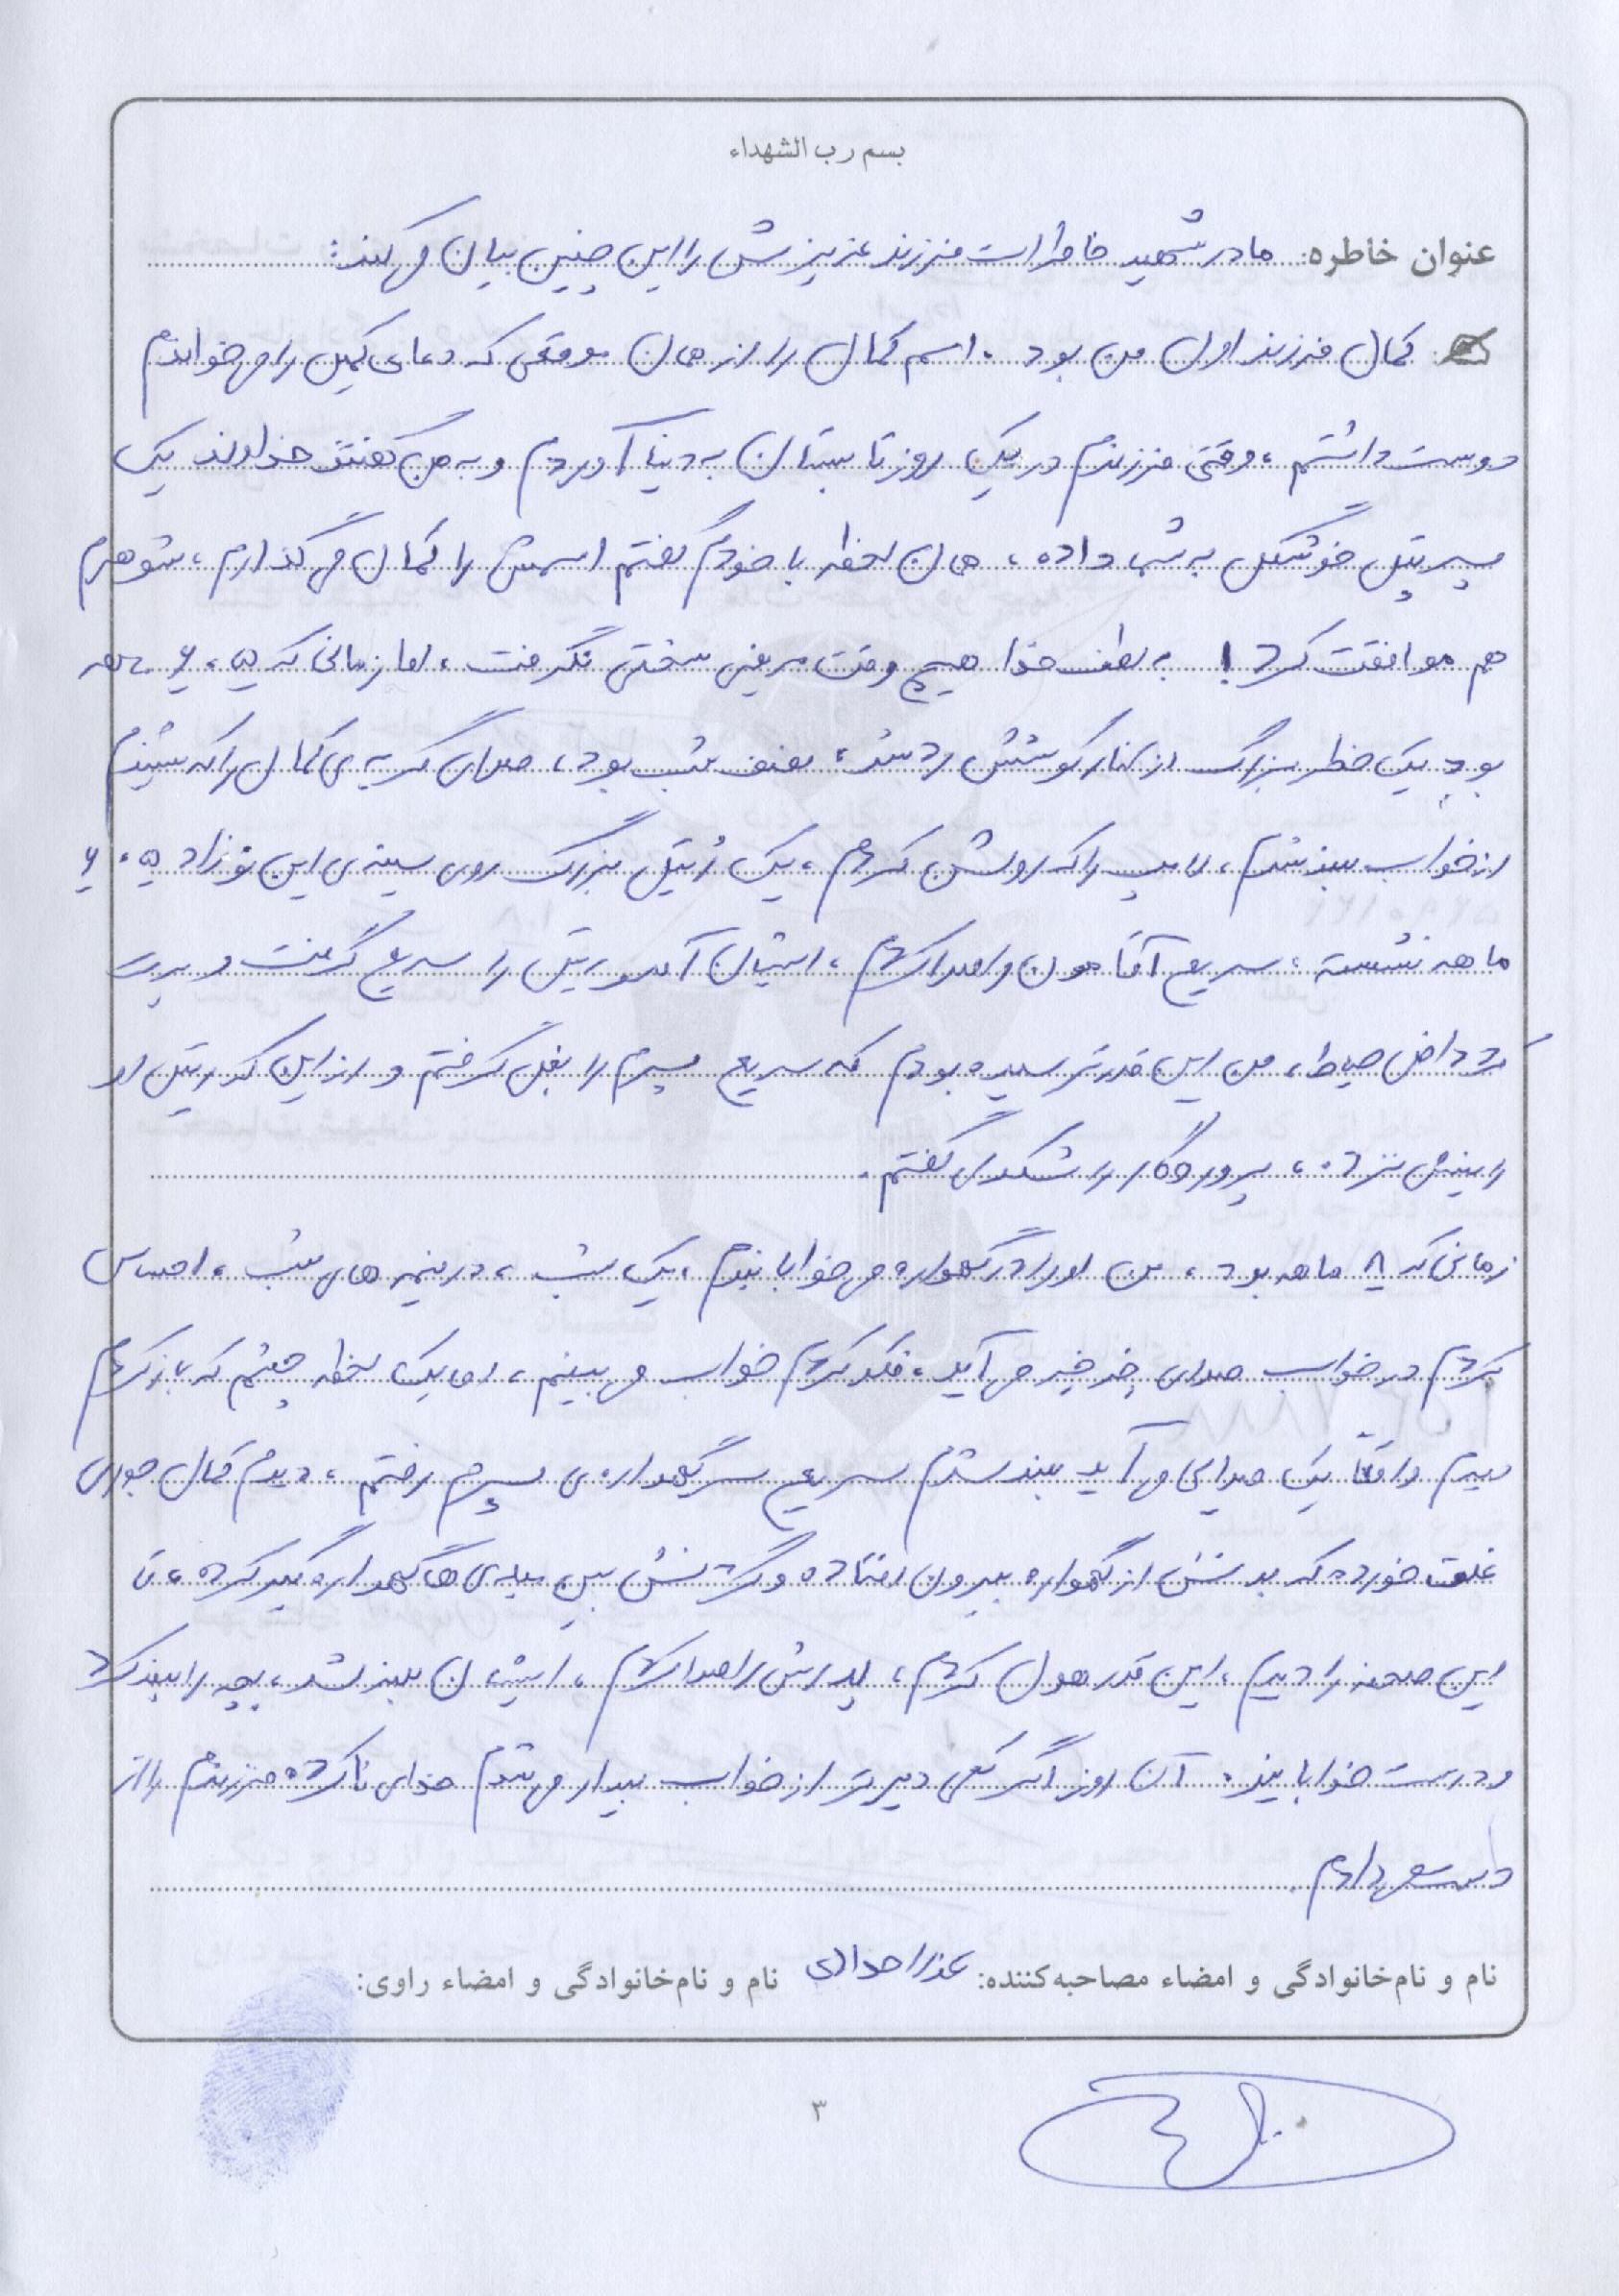 بسم رب الشهداء
عنوان خاطره: مادر شهید خاطرات فرزند عزیزش را این چنین بیان می کند:
کمال فرزند اول من بود. اسم کمال را از همان موقعی که دعای کمیل را می خواندم
دوست داشتم، وقتی فرزندم در یک روز تابستان به دنیا آوردم و به من گفتند خداوند یک
پسر تپل خوشگل به شما داده، همان لحظه با خودم گفتم اسمش را کمال می گذارم، شوهرم
هم موافقت کرد! به لطف خدا هیچ وقت مریض سختی نگرفت، اما زمانی که ۵، ۶ ماهه
بود یک خطر بزرگ از کنار گوشش رد شد، نصف شب بود، صدای گریه ی کمال را که شنیدم
از خواب بلند شدم، لامپ را که روشن کردم، یک رُتیل بزرگ روی سینه ی این نوزاد ۵، ۶
ماهه نشسته، سریع آقامون را صدا کردم، ایشان آمد و رتیل را سریع گرفت و پرت
کرد داخل حیاط، من این قدر ترسیده بودم که سریع پسرم را بغل گرفتم و از این که رتیل او
را نیش نزده، پروردگار را شکر گفتم.
زمانی که ۸ ماهه بود، من او را در گهواره می خواباندم، یک شب، در نیمه های شب، احساس
کردم در خواب صدای خِر خِر می آید، فکر کردم خواب می بینم، اما یک لحظه چشم که باز کردم
دیدم واقعاً یک صدایی می آید بلند شدم سریع سر گهواره ی پسرم رفتم، دیدم کمال جوری
غلت خورده که بدنش از گهواره بیرون افتاده و گردنش بین میله ی گهواره گیر کرده، تا
این صحنه را دیدم، این قدر هول کردم، پدرش را صدا کردم، ایشان بلند شد، بچه را بلند کرد
و درست خواباند. آن روز اگر کمی دیرتر از خواب بیدار می شدم خدای ناکرده فرزندم را از
دست می دادم.
نام و نام‌خانوادگی و امضاء مصاحبه‌کننده: عذرا حدادی نام و نام‌خانوادگی و امضاء راوی:
۳